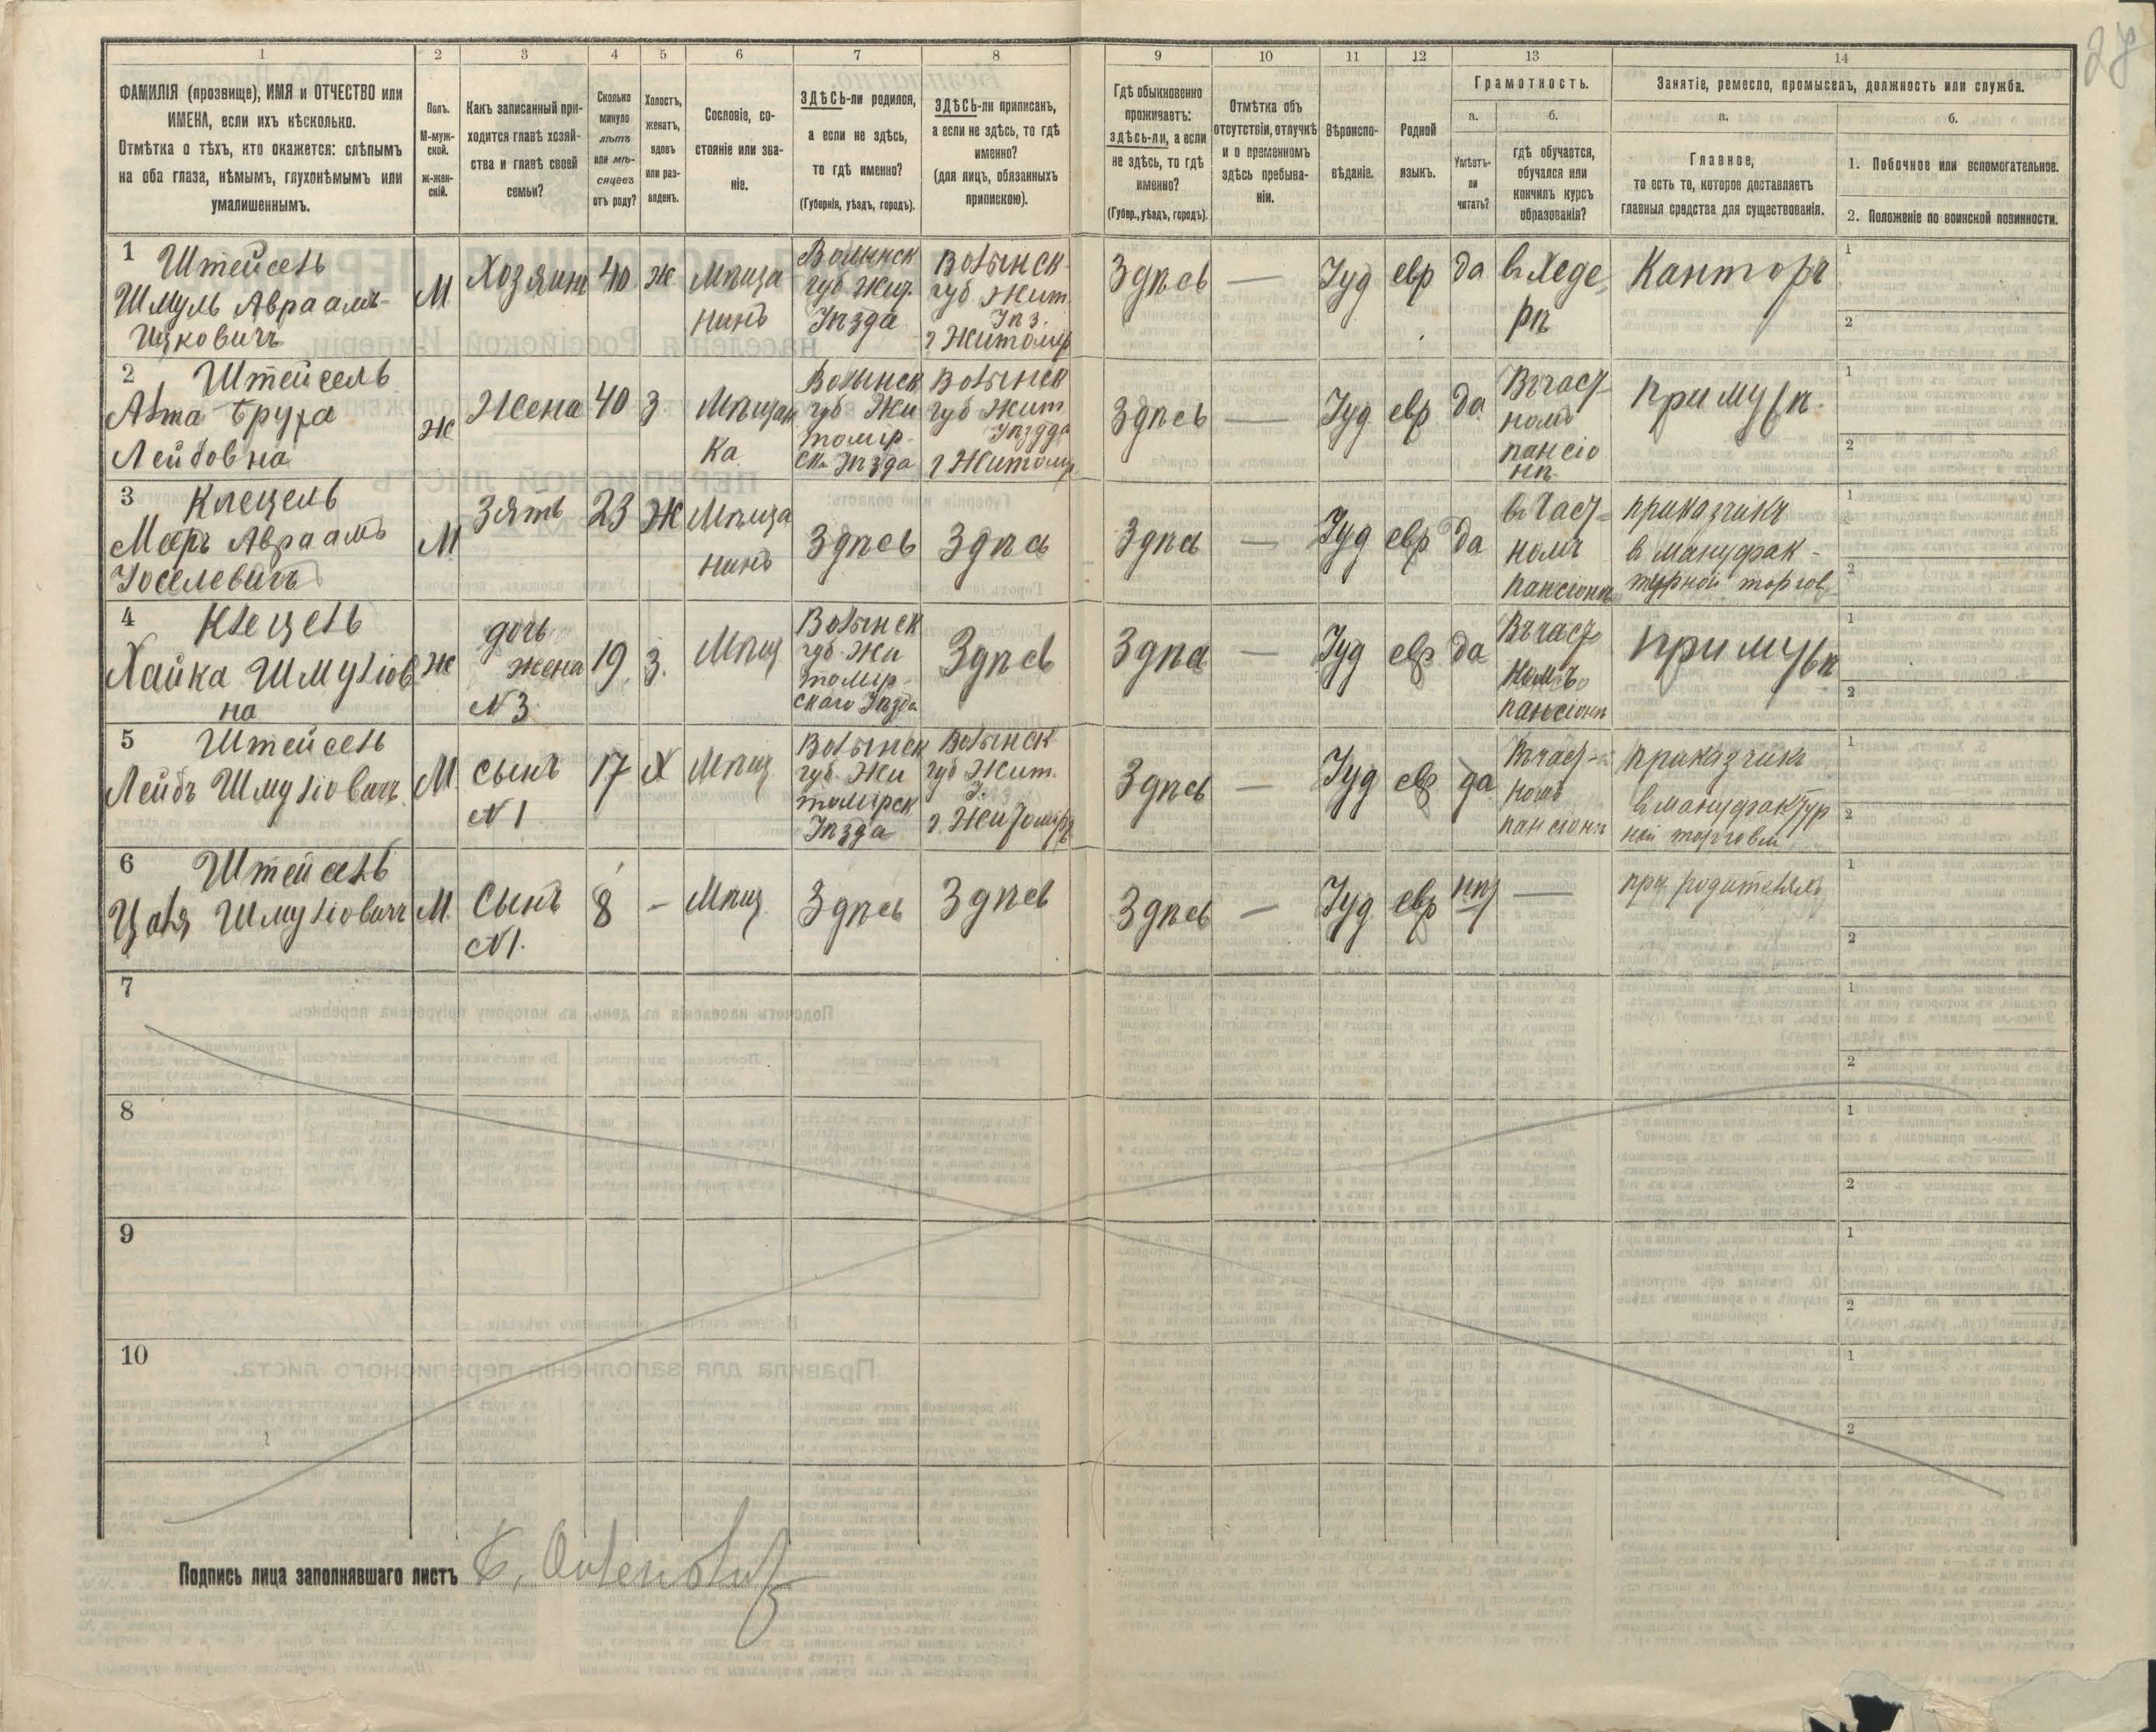 28
1
2
3
4
5
6
7
8
9
10
11
12
13
14
ФАМИЛІЯ (прозвище), ИМЯ и ОТЧЕСТВО или
ИМЕНА, если ихъ нѣсколько.
Отмѣтка о тѣхъ, кто окажется: слѣпымъ
на оба глаза, нѣмымъ, глухонѣмымъ или
умалишеннымъ.
Полъ.
М-муж-
ской.
ж-жен-
скій.
Какъ записанный при-
ходится главѣ хозяй-
ства и главѣ своей
семьи?
Сколько
минуло
лѣтъ
или мѣ-
сяцевъ
отъ роду?
Холостъ,
женатъ,
вдовъ
или раз-
веденъ.
Сословіе, со-
стояніе или зва-
ніе.
ЗДѢСЬ-ли родился,
а если не здѣсь,
то гдѣ именно?
(Губернія, уѣздъ, городъ).
ЗДѢСЬ-ли приписанъ,
а если не здѣсь, то гдѣ
именно?
(для лицъ, обязанныхъ
припискою).
Гдѣ обыкновенно
проживаетъ:
здѣсь-ли, а если
не здѣсь, то гдѣ
именно?
(Губер., уѣздъ, городъ).
Отмѣтка объ
отсутствіи, отлучкѣ
и о временномъ
здѣсь пребыва-
ніи.
Вѣроиспо-
вѣданіе.
Родной
языкъ.
Грамотность.
а.
Умѣетъ-
ли
читать?
б.
гдѣ обучается,
обучался или
кончилъ курсъ
образованія?
Занятіе, ремесло, промыселъ, должность или служба.
а.
Главное,
то есть то, которое доставляетъ
главныя средства для существованія.
б.
1. Побочное или вспомогательное.
2. Положеніе по воинской повинности.
1 Штейсель
Шмуль Авраамъ-
Ицковичъ
М
Хозяинъ
40
ж
Мѣща
нинъ
Волынск
губ Жит.
Уѣзда
Волынск
губ Жит.
Уѣз.
г Житомир
Здѣсь
—
Іуд
евр
да
въ Хеде
рѣ
Канторъ
1
2
2 Штейсель
Лейбовна
ж
Жена
40
З
Мѣщан
ка
Волынск
губ Жи
томір-
ск. Уѣзда
Волынск
губ Жит
Уѣздда
г Житомир
Здѣсь
—
Іуд
евр
да
Въ част-
номъ
пансіо
нѣ
при мужѣ
1
2
3 Клецель
Мееръ Авраамъ
Іоселевичъ
М
Зять
23
Ж
Мѣща
нинъ
Здѣсь
Здѣсь
Здѣсь
—
Іуд
евр
да
въ част-
номъ
пансіонѣ
приказчикъ
в мануфак-
турной торгов
1
2
4 Клецель
Хайка Шмуліов
на
ж
дочь
жена
N3
19
з.
Мѣщ
Волынск
губ. Жи
томир-
скаго Уѣзда
Здѣсь
Здѣсь
—
Іуд
евр
да
Въ част
номъ
пансіонѣ
при мужѣ
1
2
5 Штейсель
Лейбъ Шмуліовичъ
М
сынъ
N1
17
Х
Мѣщ
Волынск
губ. Жи
томірск
Уѣзда
Волынск
губ Жит.
У.
г. Житомір
Здѣсь
—
Іуд
евр
да
Въ част-
номъ
пансіонѣ
приказчикъ
в мануфактур
ной торговли
1
2
6 Штейсель
Шмуліовичъ
М.
Сынъ
N1.
8
—
Мѣщ
Здѣсь
Здѣсь
Здѣсь
—
Іуд
евр
нѣт
—
при родителяхъ
1
2
7
1
2
8
1
2
9
1
2
10
1
2
Подпись лица заполнявшаго листъ